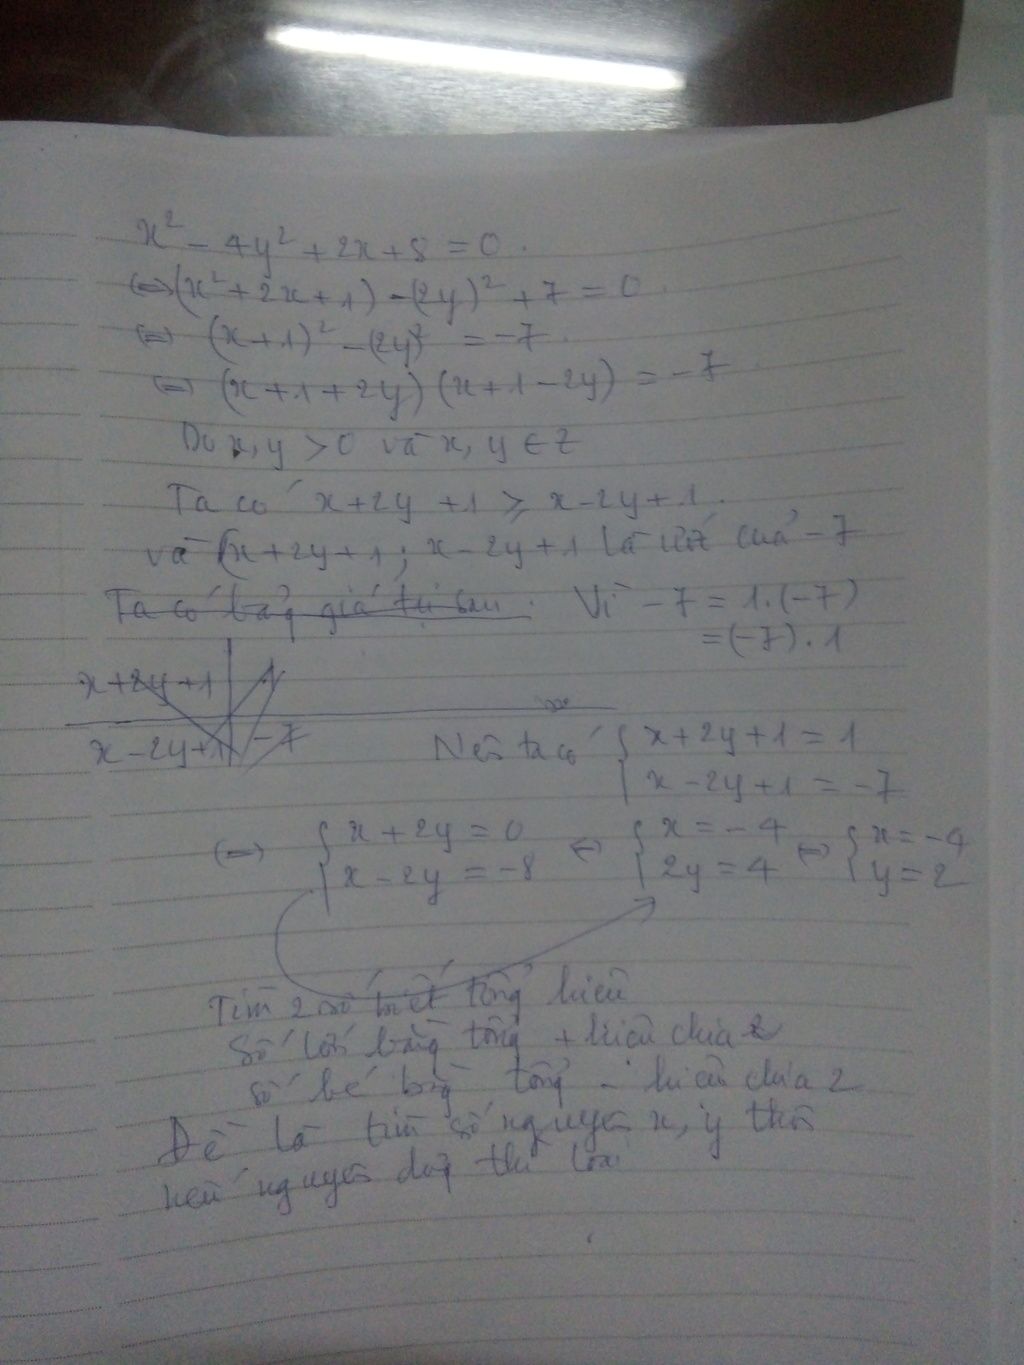 x² - 4y² + 2x + 8 = 0.
⇔ (x² + 2x + 1) - (2y)² + 7 = 0
⇔ (x+1)² - (2y)² = -7.
⇔ (x+1+2y)(x+1-2y) = -7.
Do x, y > 0 và x, y ∈ Z
Ta có x + 2y + 1 ≥ x - 2y + 1.
và (x + 2y + 1; x - 2y + 1 là ước của -7
Ta có bảng giá trị sau. Vì -7 = 1.(-7)
= (-7).1
x + 2y + 1 | 1
x - 2y + 1 | -7
Nên ta có { x + 2y + 1 = 1
x - 2y + 1 = -7
⇔ { x + 2y = 0 ⇔ { x = -4 ⇔ { x = -4
x - 2y = -8 2y = 4 y = 2
Tìm 2 số biết tổng hiệu
Số lớn bằng tổng + hiệu chia 2
số bé bằng tổng - hiệu chia 2
Đề là tìm số nguyên x, y thôi
nếu nguyên dương thì loại